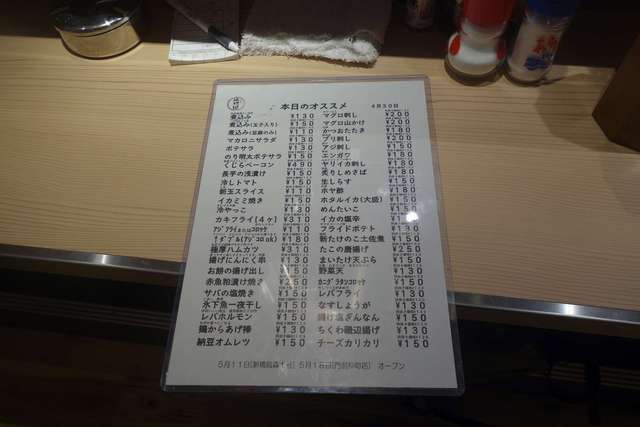 本日のオススメ 4月30日
煮込み ¥130
煮込み(玉子入り) ¥150
煮込み(豆腐のみ) ¥110
マカロニサラダ ¥130
ポテサラ ¥130
のり明太ポテサラ ¥150
くじらベーコン ¥490
長芋の浅漬け ¥150
冷しトマト ¥150
新玉スライス ¥110
イカミミ焼き ¥150
冷やっこ ¥130
カキフライ(4ヶ) ¥310
アジフライまたはコロッケ ¥110
↑ダブル(アジコロok) ¥180
極厚ハムカツ ¥310
揚げにんにく串 ¥130
お餅の揚げ出し ¥150
赤魚粕漬け焼き ¥250
サバの塩焼き ¥150
氷下魚一夜干し ¥150
レバホルモン ¥150
鶏から揚げ棒 ¥130
納豆オムレツ ¥150
マグロ刺し ¥200
マグロ山かけ ¥200
かつおたたき ¥180
ブリ刺し ¥200
アジ刺し ¥150
エンガワ ¥180
ヤリイカ刺し ¥180
炙りしめさば ¥180
生しらす ¥150
ホヤ酢 ¥180
ホタルイカ(大盛) ¥150
めんたいこ ¥150
イカの塩辛
フライドポテト ¥130
朝たけのこ土佐煮 ¥150
たこの唐揚げ ¥150
まいたけ天ぷら ¥150
野菜天 ¥130
カニグラタンコロッケ ¥150
レバフライ ¥130
なすしょうが ¥150
揚げ塩ぎんなん ¥150
ちくわ磯辺揚げ ¥130
チーズカリカリ ¥150
5月11日[新橋烏森 5月16日[門前仲町店] オープン